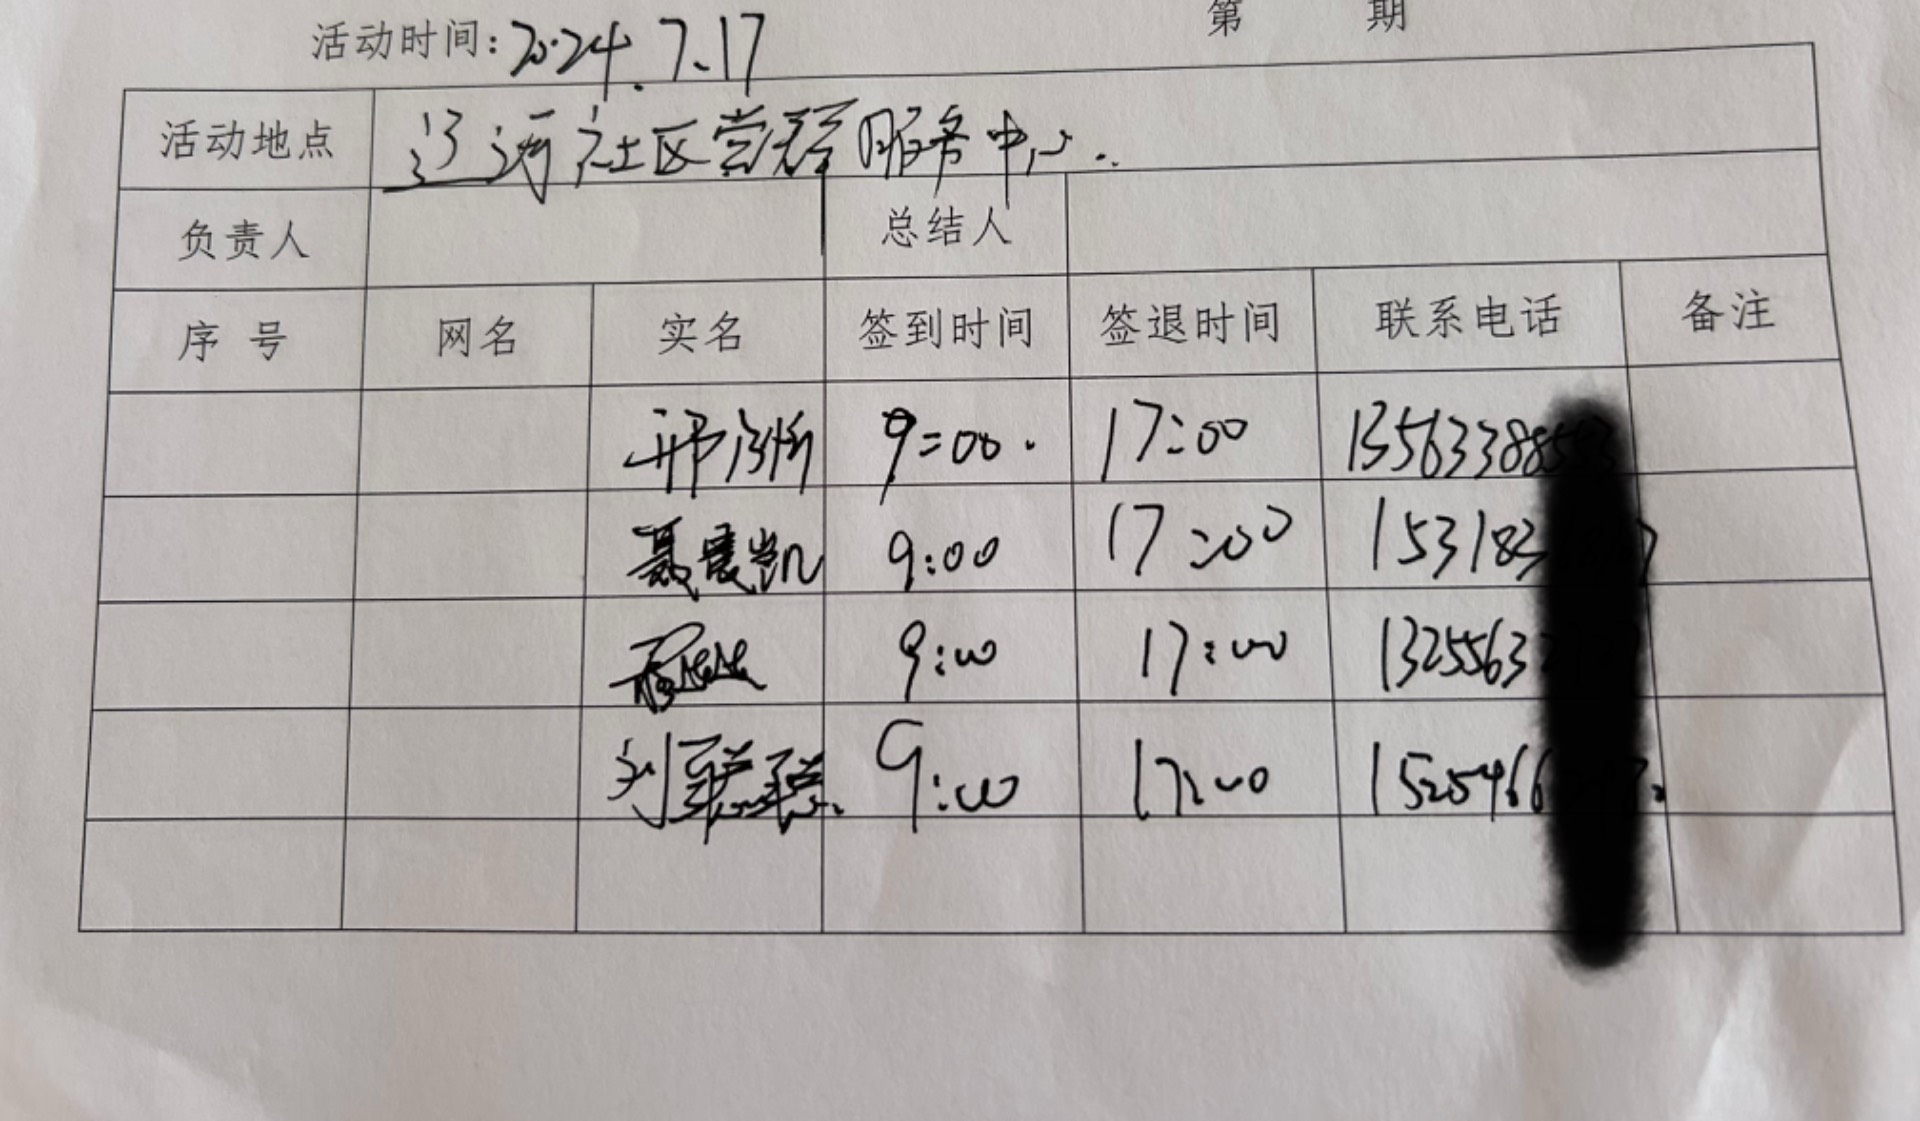 第 期
活动时间:2024.7.17
活动地点 社区党群服务中心.
负责人 总结人
序号 网名 实名 签到时间 签退时间 联系电话 备注
9:00. 17:00 135633885
聂震凯 9:00 17:00 153183
9:00 17:00 1325563
刘聪聪. 9:00 17:00 1525466